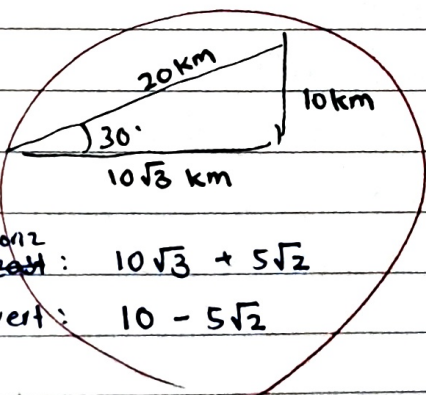 20km
10km
30°
10√3 km
horiz
: 10√3 + 5√2
vert: 10 - 5√2